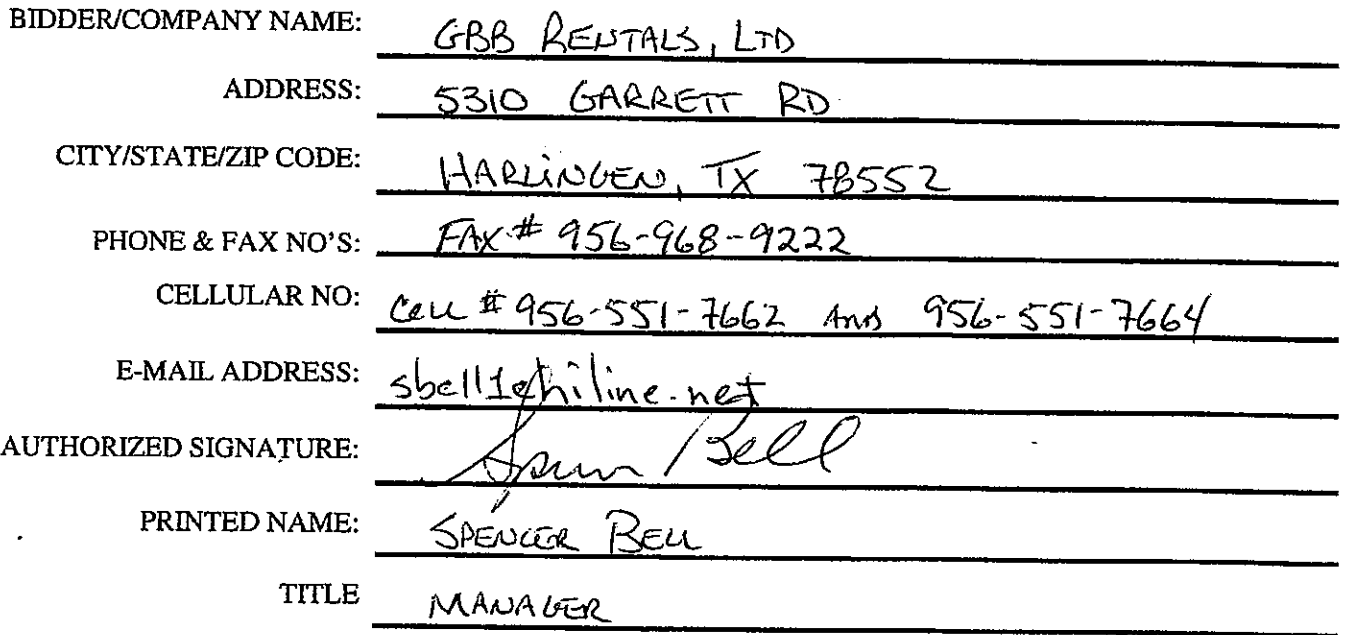 BIDDER/COMPANY NAME: GBB RENTALS, LTD
ADDRESS: 5310 GARRETT RD
CITY/STATE/ZIP CODE: HARLINGEN, TX 78552
PHONE & FAX NO'S: FAX # 956-968-9222
CELLULAR NO: Cell # 956-551-7662 And 956-551-7664
E-MAIL ADDRESS: sbell1@hiline.net
AUTHORIZED SIGNATURE: Spencer Bell
PRINTED NAME: SPENCER BELL
TITLE MANAGER